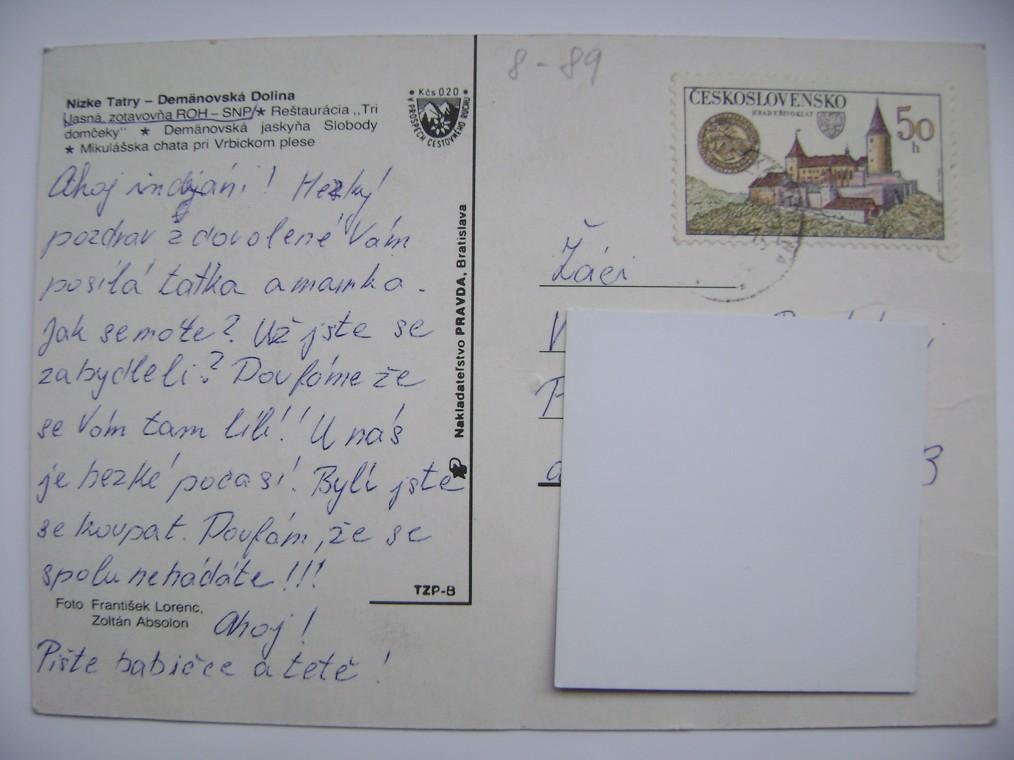 8 - 89
Nízke Tatry – Demänovská Dolina
Jasná, zotavovňa ROH – SNP ★ Reštaurácia „Tri
domčeky" ★ Demänovská jaskyňa Slobody
★ Mikulášska chata pri Vrbickom plese
Kčs 0,20
V PROSPECH CESTOVNÉHO RUCHU
Ahoj indijáni! Hezký
pozdrav z dovolené Vám
posílá taťka a mamka.
Jak se máte? Už jste se
zabydleli? Doufáme že
se Vám tam líbí! U nás
je hezké počasí. Byli jste
se koupat. Doufám, že se
spolu nehádáte!!!
Ahoj!
Pište babičce a tetě!
Foto František Lorenc,
Zoltán Absolon
Nakladateľstvo PRAVDA, Bratislava
TZP-B
ČESKOSLOVENSKO
HRAD KŘIVOKLÁT
50
h
Žáci
3